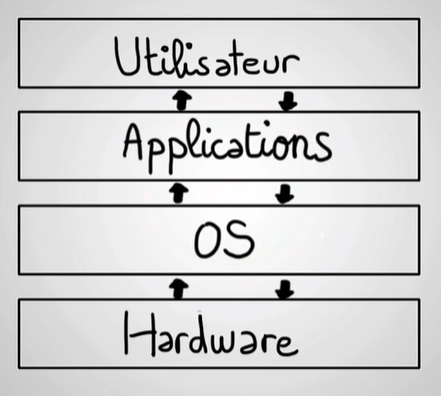 Utilisateur
Applications
OS
Hardware